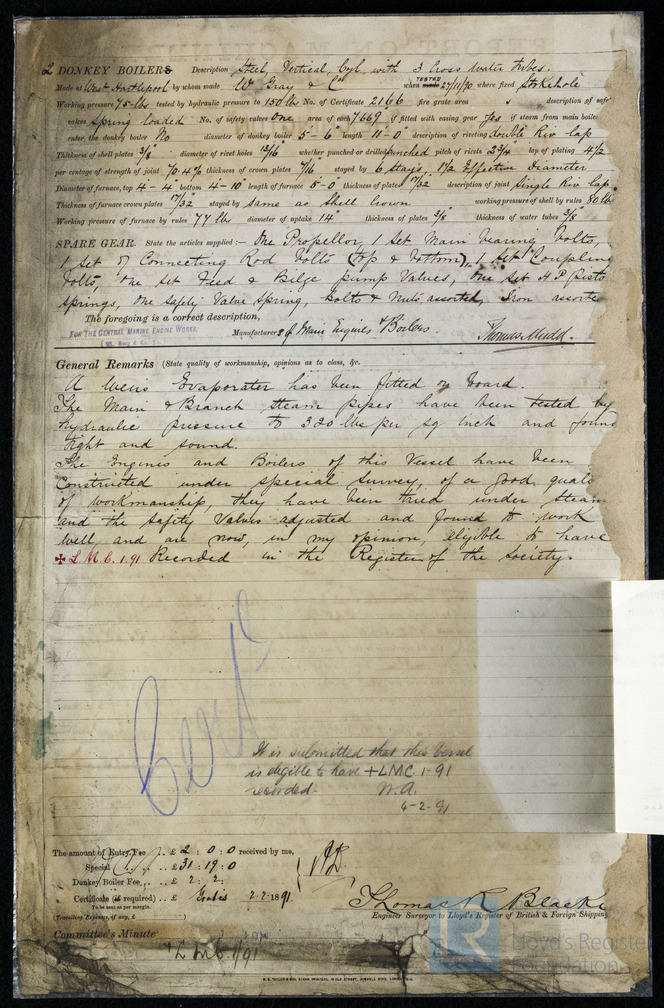 2 DONKEY BOILERS Description Steel, Vertical, Cyl, with 3 Cross Water tubes.
Made at West Hartlepool by whom made W Gray & Co when TESTED 27/11/90 where fixed Stokehole
Working pressure 75 lbs tested by hydraulic pressure to 150 lbs No. of Certificate 2166 fire grate area description of safe
valves Spring loaded No. of safety valves one area of each 7.669 if fitted with easing gear yes if steam from main boile
enter the donkey boiler No diameter of donkey boiler 5-6" length 11-0" description of riveting Double Riv lap
Thickness of shell plates 3/8 diameter of rivet holes 13/16" whether punched or drilled punched pitch of rivets 2 3/4 lap of plating 4 1/2
per centage of strength of joint 70.4% thickness of crown plates 7/16 stayed by 6 stays, 1 1/2 Effective Diameter
Diameter of furnace, top 4-4 bottom 4-10 length of furnace 5-0 thickness of plates 17/32 description of joint Single Riv lap
Thickness of furnace crown plates 17/32 stayed by same as shell crown working pressure of shell by rules 80 lb
Working pressure of furnace by rules 77 lb diameter of uptake 14" thickness of plates 3/8 thickness of water tubes 3/8
SPARE GEAR. State the articles supplied:— One Propellor, 1 Set Main bearing bolts,
1 Set of Connecting Rod bolts (top & bottom), 1 Set Coupling
bolts, one Set Feed & Bilge pump Valves, one set H P Pisto
Springs, one Safety Valve Spring, bolts & Nuts, assorted, Iron assorte
The foregoing is a correct description,
FOR THE CENTRAL MARINE ENGINE WORKS,
(W. Gray & Co. L.)
Manufacturers of Main Engines & Boilers. Thomas Mudd.
General Remarks (State quality of workmanship, opinions as to class, &c.
A Weirs Evaporater has been fitted on board.
The Main & Branch steam pipes have been tested by
hydraulic pressure to 320 lbs per sq inch and found
tight and sound.
The Engines and Boilers of this Vessel have been
Constructed under special survey, of a good quali
of workmanship, they have been tried under steam
and the safety Valves adjusted and found to work
well, and are now, in my opinion, eligible to have
✠ L.M.C. 1.91 Recorded in the Register of the Society.
Cert
It is submitted that this Vessel
is eligible to have +LMC 1-91
recorded. W.A.
4-2-91
The amount of Entry Fee .. £ 2 : 0 : 0 received by me,
Special .. £ 31 : 19 : 0
Donkey Boiler Fee .. £ 2 : 2 :
Certificate (if required) .. £ Gratis 2-2-1891
To be sent as per margin.
(Travelling Expenses, if any, £ )
Thomas R Black
Engineer Surveyor to Lloyd's Register of British & Foreign Shipping
Committee's Minute
+ L M C 1/91
Lloyd's Register
Foundation